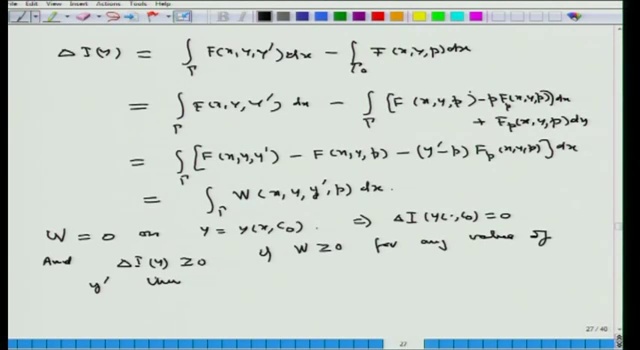 File Edit View Insert Actions Tools Help
Δ I(y) = ∫_Γ F(x, y, y') dx − ∫_Γ₀ F(x, y, p) dx
= ∫_Γ F(x, y, y') dx − ∫_Γ [F(x, y, p) − p F_p(x, y, p)] dx
+ F_p(x, y, p) dy
= ∫_Γ [F(x, y, y') − F(x, y, p) − (y' − p) F_p(x, y, p)] dx
= ∫_Γ W(x, y, y', p) dx.
W = 0 on y = y(x, C₀). ⇒ Δ I(y(·, C₀) = 0
And Δ I(y) ≥ 0 if W ≥ 0 for any value of
y'
27 / 40
27